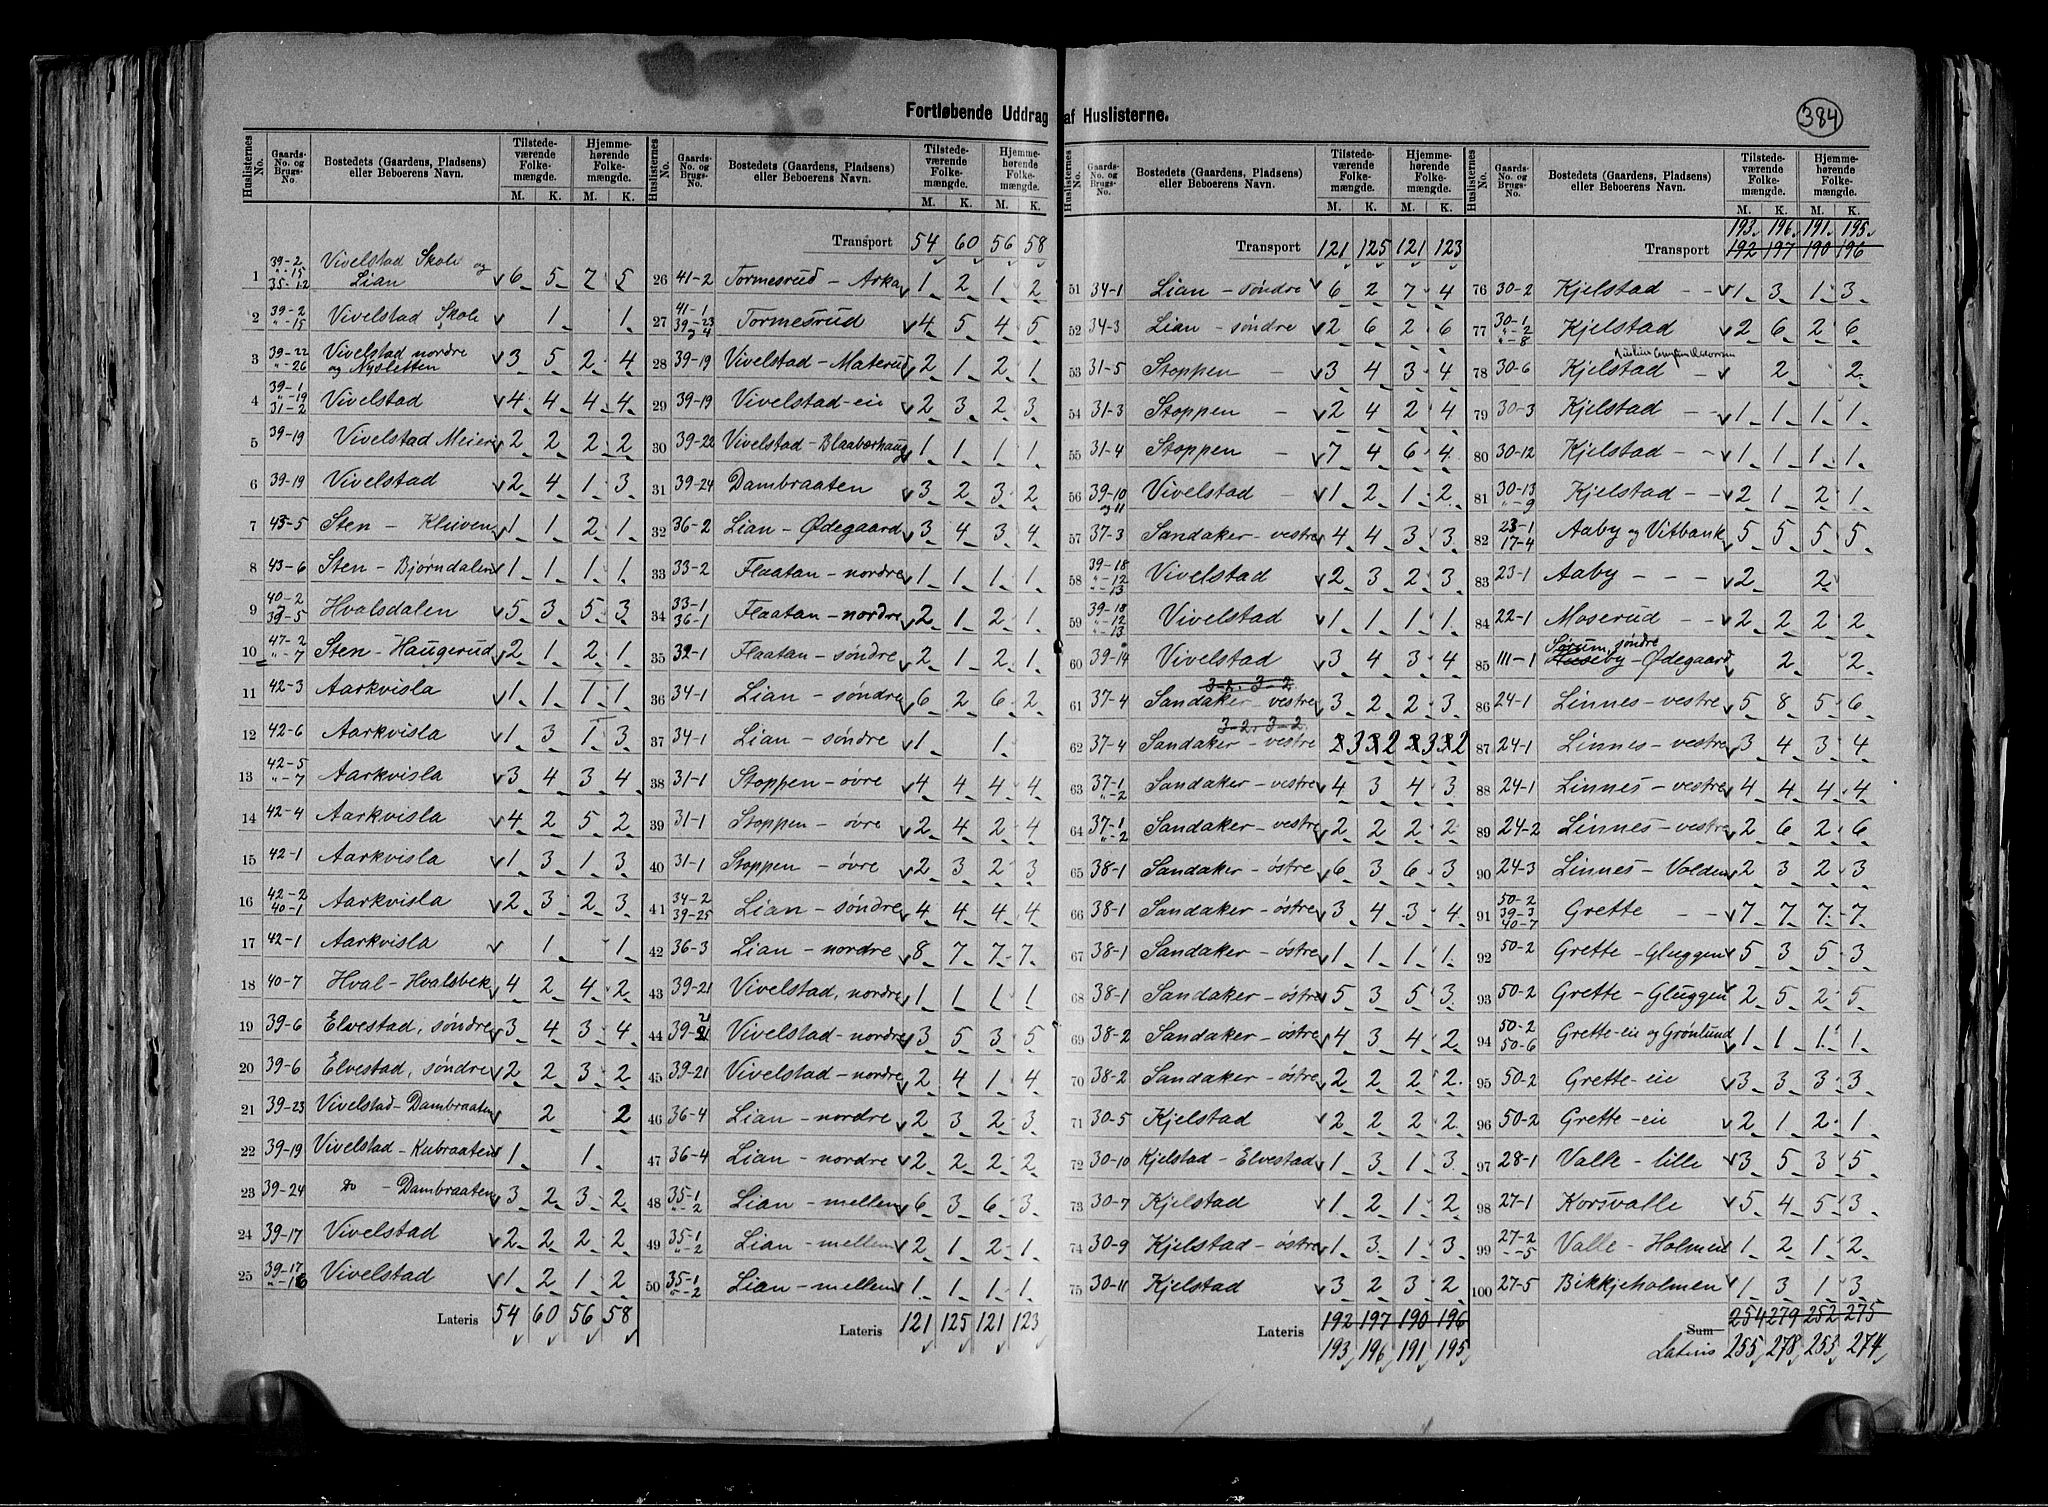 Fortløbende Uddrag af Huslisterne.
384
Huslisternes No. | Gaards-No. og Brugs-No. | Bostedets (Gaardens, Pladsens) eller Beboerens Navn. | Tilstedeværende Folkemængde. M. K. | Hjemmehørende Folkemængde. M. K.
1 39-2 "-15 35-12 Vivelstad Skole og Lian 6 5 7 5
2 39-2 "-15 Vivelstad Skole 1 1
3 39-22 "-26 Vivelstad nordre og Nysletten 3 5 2 4
4 39-1 "-19 31-2 Vivelstad 4 4 4 4
5 39-19 Vivelstad Meieri 2 2 2 2
6 39-19 Vivelstad 2 4 1 3
7 43-5 Sten - Kleiven 1 1 2 1
8 43-6 Sten - Bjørndalen 1 1 1 1
9 40-2 39-5 Hvalsdalen 5 3 5 3
10 47-2 "-7 Sten - Haugerud 2 1 2 1
11 42-3 Aarkvisla 1 1 1 1
12 42-6 Aarkvisla 1 3 1 3
13 42-5 "-7 Aarkvisla 3 4 3 4
14 42-4 Aarkvisla 4 2 5 2
15 42-1 Aarkvisla 1 3 1 3
16 42-2 40-1 Aarkvisla 2 3 2 3
17 42-1 Aarkvisla 1 1
18 40-7 Hval - Hvalsbek 4 2 4 2
19 39-6 Elvestad, søndre 3 4 3 4
20 39-6 Elvestad, søndre 2 2 3 2
21 39-23 Vivelstad - Dambraaten 2 2
22 39-19 Vivelstad - Kubraaten 1 1
23 39-24 do - Dambraaten 3 2 3 2
24 39-17 Vivelstad 2 2 2 2
25 39-17 "-16 Vivelstad 1 2 1 2
Lateris 54 60 56 58
Huslisternes No. | Gaards-No. og Brugs-No. | Bostedets (Gaardens, Pladsens) eller Beboerens Navn. | Tilstedeværende Folkemængde. M. K. | Hjemmehørende Folkemængde. M. K.
Transport 54 60 56 58
26 41-2 Tormesrud - Arka 1 2 1 2
27 41-1 39-23 og 4 Tormesrud 4 5 4 5
28 39-19 Vivelstad - Materud 2 1 2 1
29 39-19 Vivelstad - eie 2 3 2 3
30 39-22 Vivelstad - Blaabærhaug 1 1 1 1
31 39-24 Dambraaten 3 2 3 2
32 36-2 Lian - Ødegaard 3 4 3 4
33 33-2 Flaatan - nordre 1 1 1 1
34 33-1 36-1 Flaatan - nordre 2 1 2 1
35 32-1 Flaatan - søndre 2 1 2 1
36 34-1 Lian - søndre 6 2 6 2
37 34-1 Lian - søndre 1 1
38 31-1 Stoppen - øvre 4 4 4 4
39 31-1 Stoppen - øvre 2 4 2 4
40 31-1 Stoppen - øvre 2 3 2 3
41 34-2 39-25 Lian - søndre 4 4 4 4
42 36-3 Lian - nordre 8 7 7 7
43 39-21 Vivelstad, nordre 1 1 1 1
44 39-21 Vivelstad - nordre 3 5 3 5
45 39-21 Vivelstad - nordre 2 4 1 4
46 36-4 Lian - nordre 2 3 2 3
47 36-4 Lian - nordre 2 2 2 2
48 35-1 "-2 Lian - mellem 6 3 6 3
49 35-1 "-2 Lian - mellem 2 1 2 1
50 35-1 "-2 Lian - mellem 1 1 1 1
Lateris 121 125 121 123
Huslisternes No. | Gaards-No. og Brugs-No. | Bostedets (Gaardens, Pladsens) eller Beboerens Navn. | Tilstedeværende Folkemængde. M. K. | Hjemmehørende Folkemængde. M. K.
Transport 121 125 121 123
51 34-1 Lian - søndre 6 2 7 4
52 34-3 Lian - søndre 2 6 2 6
53 31-5 Stoppen - 3 4 3 4
54 31-3 Stoppen - 2 4 2 4
55 31-4 Stoppen - 7 4 6 4
56 39-10 og 11 Vivelstad - 1 2 1 2
57 37-3 Sandaker - vestre 4 4 3 3
58 39-18 "-12 "-13 Vivelstad 2 3 2 3
59 39-18 "-12 "-13 Vivelstad 1 1 1 1
60 39-14 Vivelstad 3 4 3 4
3-2. 3-2
61 37-4 Sandaker - vestre 3 2 2 3
3-2. 3-2
62 37-4 Sandaker - vestre 3 2 3 2
63 37-1 "-2 Sandaker - vestre 4 3 4 3
64 37-1 "-2 Sandaker - vestre 2 2 2 2
65 38-1 Sandaker - østre 6 3 6 3
66 38-1 Sandaker - østre 3 4 3 4
67 38-1 Sandaker - østre 1 1 1 1
68 38-1 Sandaker - østre 5 3 5 3
69 38-2 Sandaker - østre 4 3 4 2
70 38-2 Sandaker - østre 2 2 2 2
71 30-5 Kjelstad 2 2 2 2
72 30-10 Kjelstad - Elvestad 1 3 1 3
73 30-7 Kjelstad 1 2 1 2
74 30-9 Kjelstad - østre 1 3 1 3
75 30-11 Kjelstad 3 2 3 2
Lateris 192 197 190 196
193 196 191 195
Huslisternes No. | Gaards-No. og Brugs-No. | Bostedets (Gaardens, Pladsens) eller Beboerens Navn. | Tilstedeværende Folkemængde. M. K. | Hjemmehørende Folkemængde. M. K.
193 196 191 195
Transport 192 197 190 196
76 30-2 Kjelstad - - 1 3 1 3
77 30-1 "-2 "-8 Kjelstad 2 6 2 6
78 30-6 Kjelstad - 2 2
79 30-3 Kjelstad - - 1 1 1 1
80 30-12 Kjelstad - - 1 1 1 1
81 30-13 "-9 Kjelstad - - 2 1 2 1
82 23-1 17-4 Aaby og Vitbank 5 5 5 5
83 23-1 Aaby - - - 2 2
84 22-1 Moserud - - 2 2 2 2
Sørum, søndre
85 111-1 Huseby - Ødegaard 2 2
86 24-1 Linnes - vestre 5 8 5 6
87 24-1 Linnes - vestre 3 4 3 4
88 24-1 Linnes - vestre 4 4 4 4
89 24-2 Linnes - vestre 2 6 2 6
90 24-3 Linnes - Volden 2 3 2 3
91 50-2 39-3 40-7 Grette - - 7 7 7 7
92 50-2 Grette - Gluggen 5 3 5 3
93 50-2 Grette - Gluggen 2 5 2 5
94 50-2 50-6 Grette - eie og Grønlund 1 1 1 1
95 50-2 Grette - eie 3 3 3 3
96 50-2 Grette - eie 2 1 2 1
97 28-1 Valle - lille 3 5 3 5
98 27-1 Korsvalle 5 4 5 3
99 27-2 "-5 Valle - Holmen 1 2 1 2
100 27-5 Bikkjeholmen 1 3 1 3
Sum 254 279 252 275
Lateris 255 278 255 274